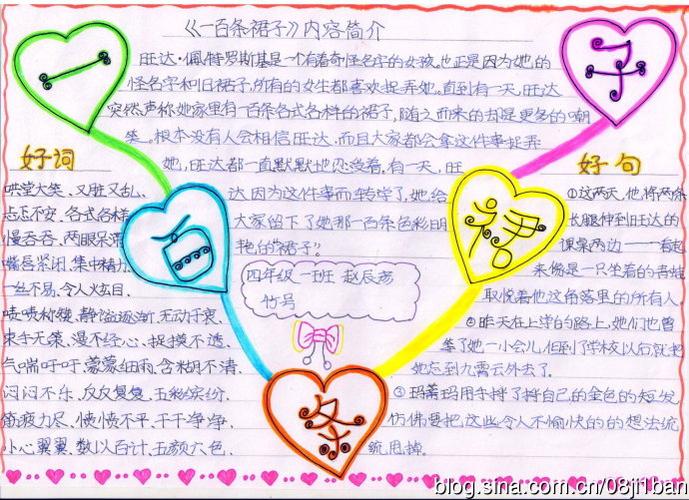 《一百条裙子》内容简介
一
百
条
裙
子
旺达·佩特罗斯基是一个有着奇怪名字的女孩。也正是因为她的
怪名字和旧裙子,所有的女生都喜欢捉弄她。直到有一天,旺达
突然声称她家里有一百条各式各样的裙子,随之而来的却是更多的嘲
笑。根本没有人会相信旺达,而且大家都会拿这件事捉弄
她,旺达都一直默默地忍受着,有一天,旺
达因为这件事而转学了,她给
大家留下了她那一百条色彩明
艳的“裙子”。
四年级一班 赵辰彦
竹号
好词
哄堂大笑、又脏又乱、
忐忑不安、各式各样
慢吞吞、两眼呆滞
嘴唇紧闭、集中精力
一丝不易、令人炫目、
啧啧称赞、静谧逐渐、无动于衷、
束手无策、漫不经心、捉摸不透、
气喘吁吁、蒙蒙细雨、含糊不清、
闷闷不乐、反反复复、五彩缤纷、
筋疲力尽、愤愤不平、干干净净、
小心翼翼、数以百计、五颜六色、
好句
①这两天,他将两条
长腿伸到旺达的
课桌两边——看起
来像是一只坐着的青蛙
取悦着他这角落里的所有人。
②昨天在上学的路上,她们也曾
等了她一小会儿,但到了学校以后就把
她忘到九霄云外去了。
③玛蒂玛用手捋了捋自己的金色的短发,
仿佛要把这些令人不愉快的的想法统
统甩掉。
blog.sina.com.cn/08ji1ban